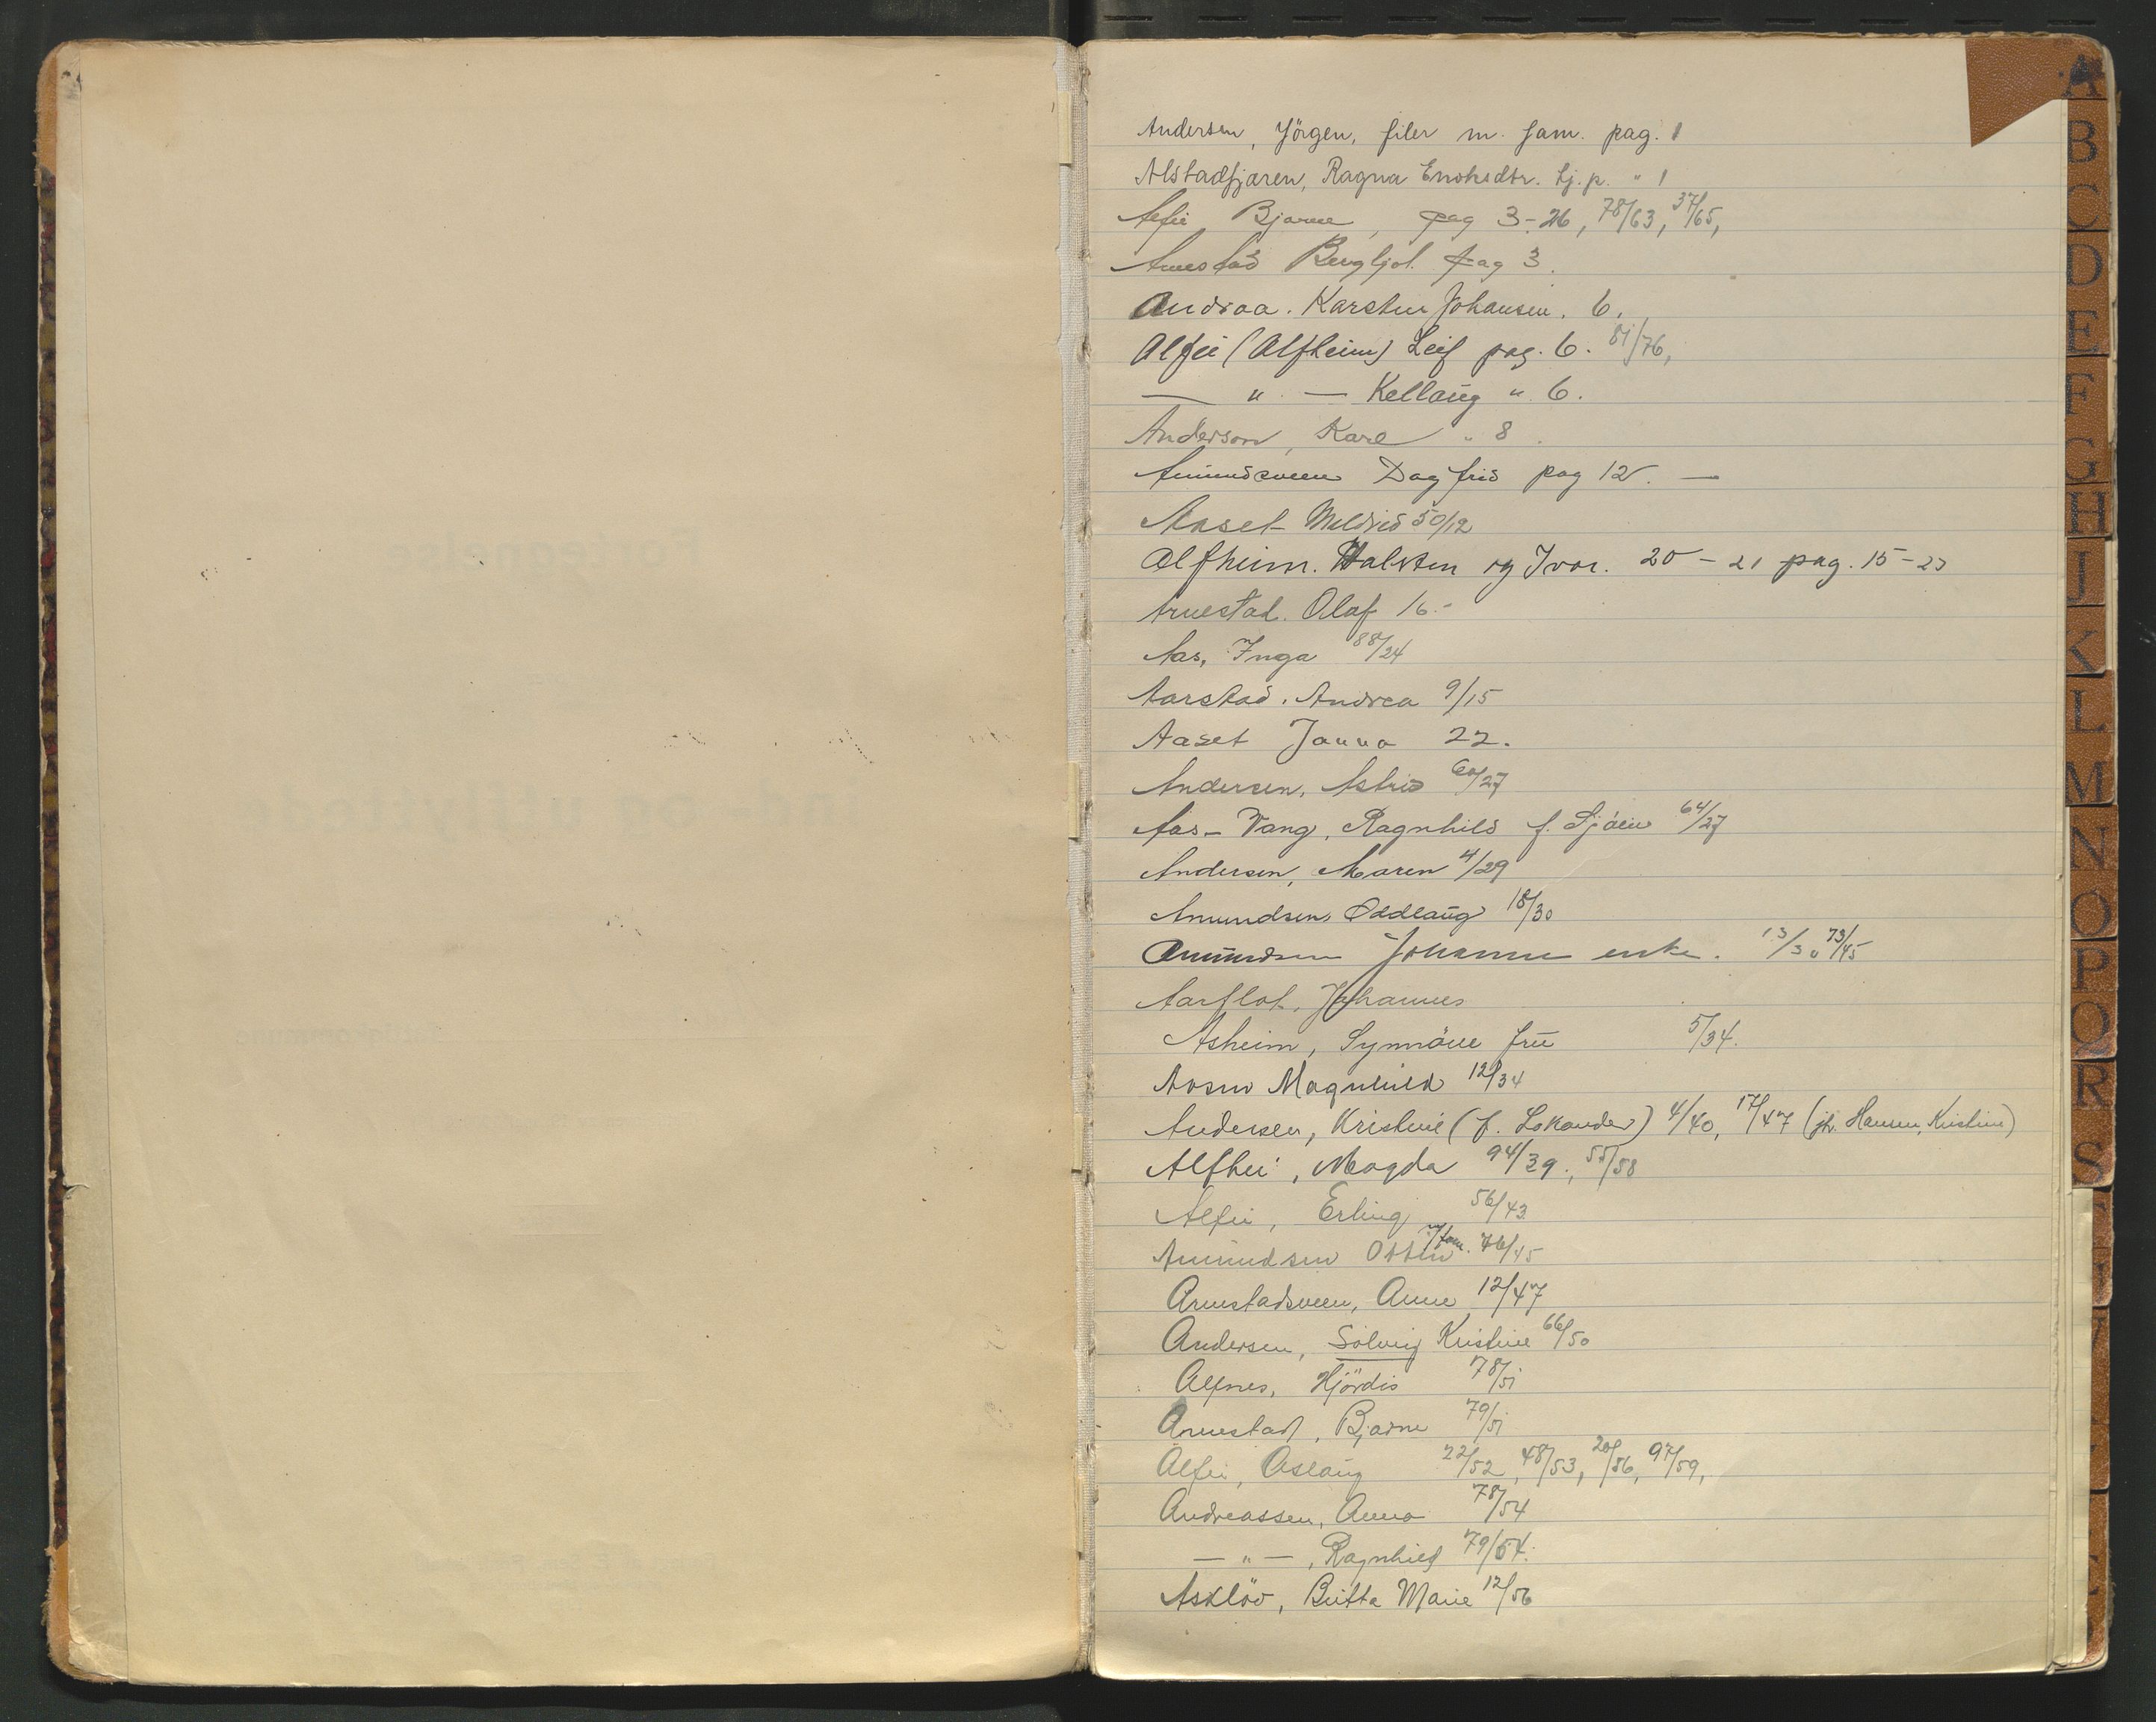 Andersen, Jörgen, filer m. fam. pag. 1
Alstadsjæren, Ragna Enoksdtr. tj.p. " 1
Alfei Bjarne, pag 3-26, 78/63, 37/65,
Arnestad Bergljot. pag 3.
Andraa. Karsten Johansen. 6.
Alfei (Alfheim) Leif pag. 6. 81/76,
— " — Kellaug " 6.
Anderson, Kare " 8.
Amundsveen Dagfrid pag 12. —
Aaset Meldrid 50/12
Alfheim. Halsten og Ivar. 20 - 21 pag. 15-23
Arnestad. Olaf 16.-
Aas, Inga 88/24
Aarstad. Andrea 9/15
Aaset Janna 22.
Andersen, Astrid 60/27
Aas-Vang, Ragnhild f. 64/27
Andersen, Maren 4/29
Amundsen, Oddlaug 18/30
Amundsen Johanne enke. 13/30 73/45
Aarflot, Johannes
Asheim, Synnöve frü 5/34.
Magnhild 12/34
Andersen, Kristine (f. Lokander) 4/40, 17/47 (jfr. Hansen, Kristine)
Alfhei, Magda 94/39., 55/58
Alfei, Erling 56/43
Amundsen Otten m/fam. 76/45
Arnestadsveen, Anne 12/47
Andersen, Solveig Kristine 66/50
Alfnes, Hjördis 78/51
Arnestad, Bjarne 79/51
Alfei, Aslaug 22/52, 48/53, 20/56, 97/59,
Andreassen, Anna 78/54
— " —, Ragnhild 79/54.
Asklöv, Britta Marie 12/56
A
B
C
D
E
F
G
H
I
K
L
M
N
O
P
Q
R
S